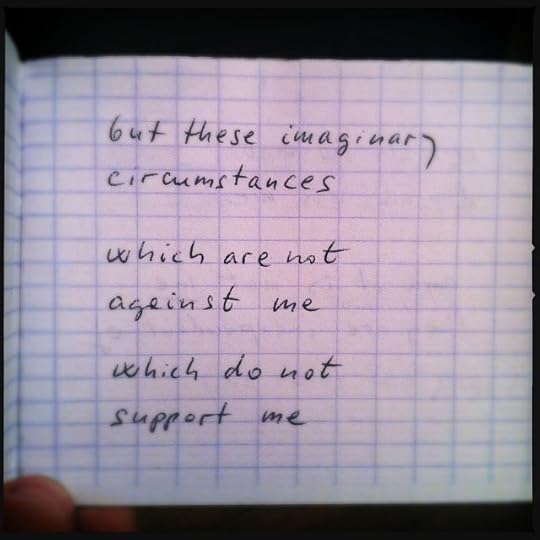 but these imaginary
circumstances
which are not
against me
which do not
support me